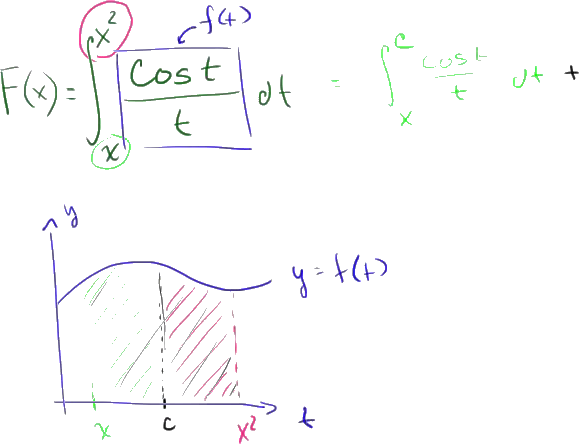 f(t)
F(x) = ∫_x^{x^2} \frac{cos t}{t} dt = ∫_x^c \frac{cos t}{t} dt +
y
y = f(t)
x c x^2 t